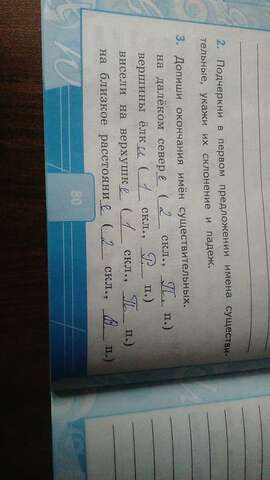 2. Подчеркни в первом предложении имена существи-
тельные, укажи их склонение и падеж.
3. Допиши окончания имён существительных.
на далёком севере (2 скл., П. п.)
вершины ёлки (1 скл., Р п.)
висели на верхушке (1 скл., П. п.)
на близкое расстояние (2 скл., В п.)
80